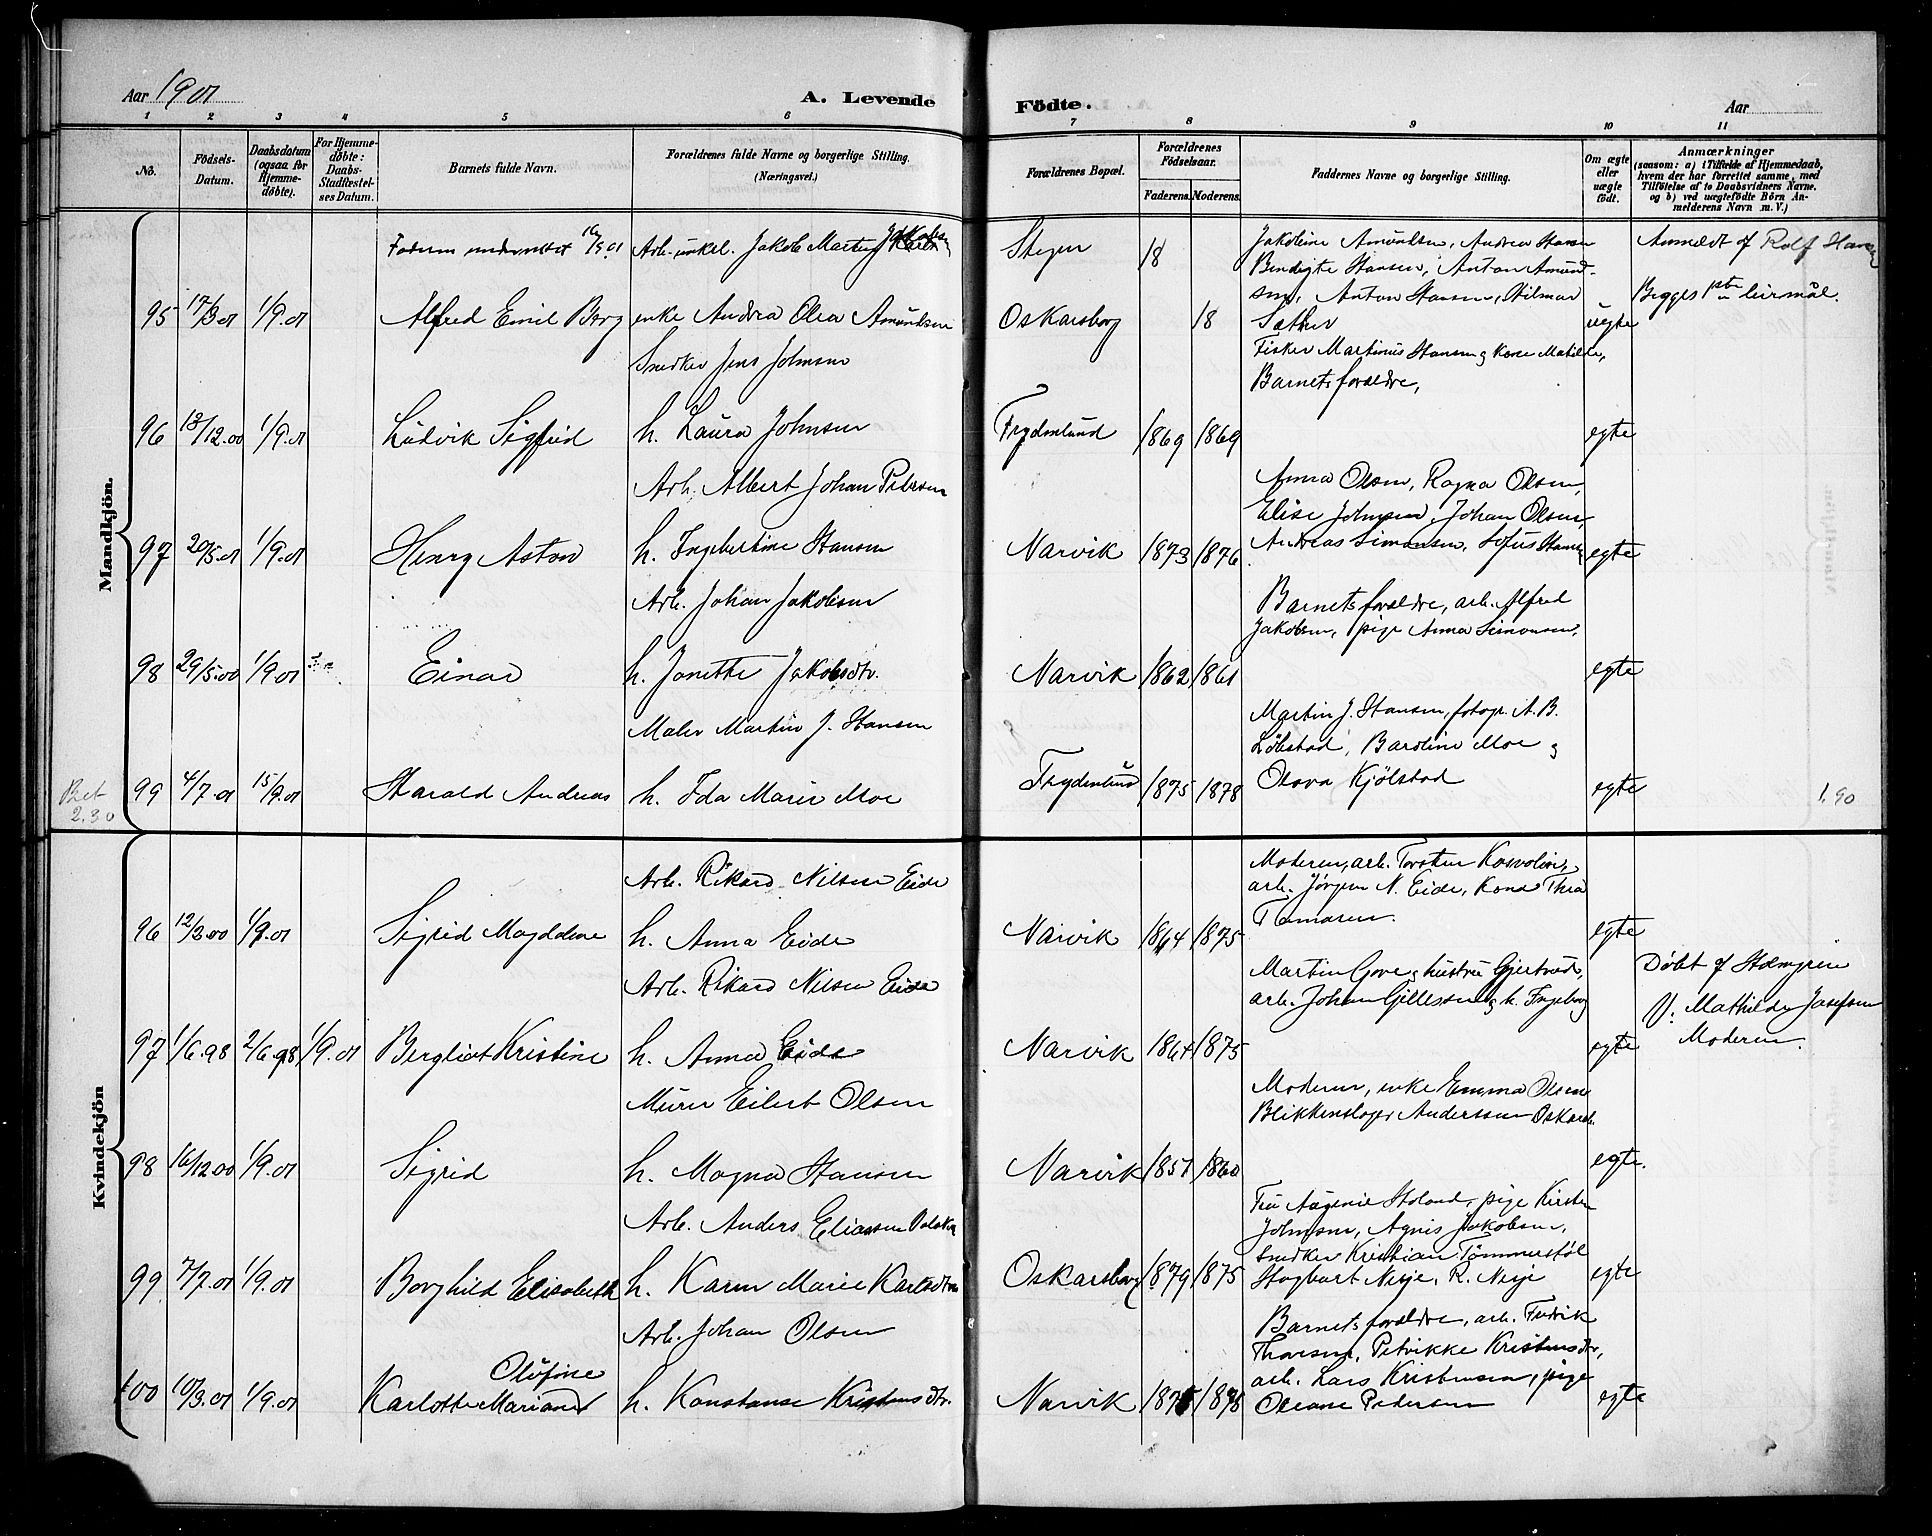 Aar 1901
A. Levende Födte.
Aar
1 2 3 4 5 6 7 8 9 10 11
No.
Födsels-Datum.
Daabsdatum (ogsaa for Hjemmedöbte).
For Hjemmedöbte: Daabs-Stadfæstelses Datum.
Barnets fulde Navn.
Forældrenes fulde Navne og borgerlige Stilling. (Næringsvei.)
Forældrenes Bopæl.
Forældrenes Födselsaar.
Faderens. Moderens.
Faddernes Navne og borgerlige Stilling.
Om ægte eller uægte födt.
Anmærkninger
(saasom: a) i Tilfælde af Hjemmedaab,
hvem der har forrettet samme, med
Tilföielse af to Daabsvidners Navne.
og b) ved uægtefödte Börn Anmelderens Navn m. V.)
Mandkjön.
Arb. unkel. Jakob Martin
Stegen 18
Jakobine Amundsen, Andrea Hansen
Anmeldt af Rolf Hansen
Bendigte Hansen, Anton Amundsen, Anton Hansen, Hilmar
Begges leirmål.
95 17/3 01 1/9.01 Alfred Emil Borg enke Andrea Olea Amundsen Oskarsborg 18 Sæther uegte
Snedker Jens Johnsen
Fisker Martinus Hansen og Kone Matilde,
Barnets forældre,
96 18/12.00 1/9.01 Ludvik Sigfred h. Laura Johnsen Frydenlund 1869 1869 egte
Arb. Albert Johan Petersen
Anna Olsen, Ragna Olsen,
Elise Johnsen, Johan Olsen,
97 20/5.01 1/9.01 Henry Aston h. Ingebertine Hansen Narvik 1873 1876 Andreas Simonsen, Sofus Hansen egte
Arb. Johan Jakobsen
Barnets forældre, arb. Alfred
Jakobsen, pige Anna Simonsen,
98 29/5.00 1/9.01 Einar h. Janette Jakobsdtr. Narvik 1862 1861 egte
Maler Martin J. Hansen
Martin J. Hansen, fotogr. A. B.
Løkstad, Baroline Moe og
Bet 2.30
99 4/7.01 15/9.01 Harald Andreas h. Ida Marie Moe Frydenlund 1875 1878 Olava Kjølstad egte 1.90
Kvindekjön
Arb. Rikard Nilsen Eide
Moderen, arb. Torsten
arb. Jørgen N. Eide, Kona Thea
96 12/3.00 1/9.01 Sigrid Magdalene h. Anna Eide Narvik 1864 1875 egte
Arb. Rikard Nilsen Eide
Martin Gove og hustru Gjertrud,
arb. Johan Gillessen og h. Ingeborg
Døbt af Holmgren
V: Mathilde Josefsen
Moderen.
97 1/6.98 2/6.98 1/9.01 Bergliot Kristine h. Anna Eide Narvik 1864 1875 egte
Murer Eilert Olsen
Moderen, enke Emma Olsen
Blikkenslager Anderssen Oskarsb.
98 16/12.00 1/9.01 Sigrid h. Magna Hansen Narvik 1851 1860 egte.
Arb. Anders Eliassen
Fru Augenie Holand, pige Kirsten
Johnsen, Agnis Jakobsen,
snedker Kristian Tømmerstøl
99 7/7.01 1/9.01 Borghild Elisabeth h. Karen Marie Karlsdtr. Oskarsborg 1879 1875 Hagbart Nesje, R. Nesje egte
Arb. Johan Olsen
Barnets forældre, arb. Fredrik
Thoresen, Petrikke Kristensdtr,
arb. Lars Kristensen, pige
100 10/3.01 1/9.01 Karlotte Mariane Olufine h. Konstanse Kristensdtr. Narvik 1875 1878 Oleane Pedersen egte